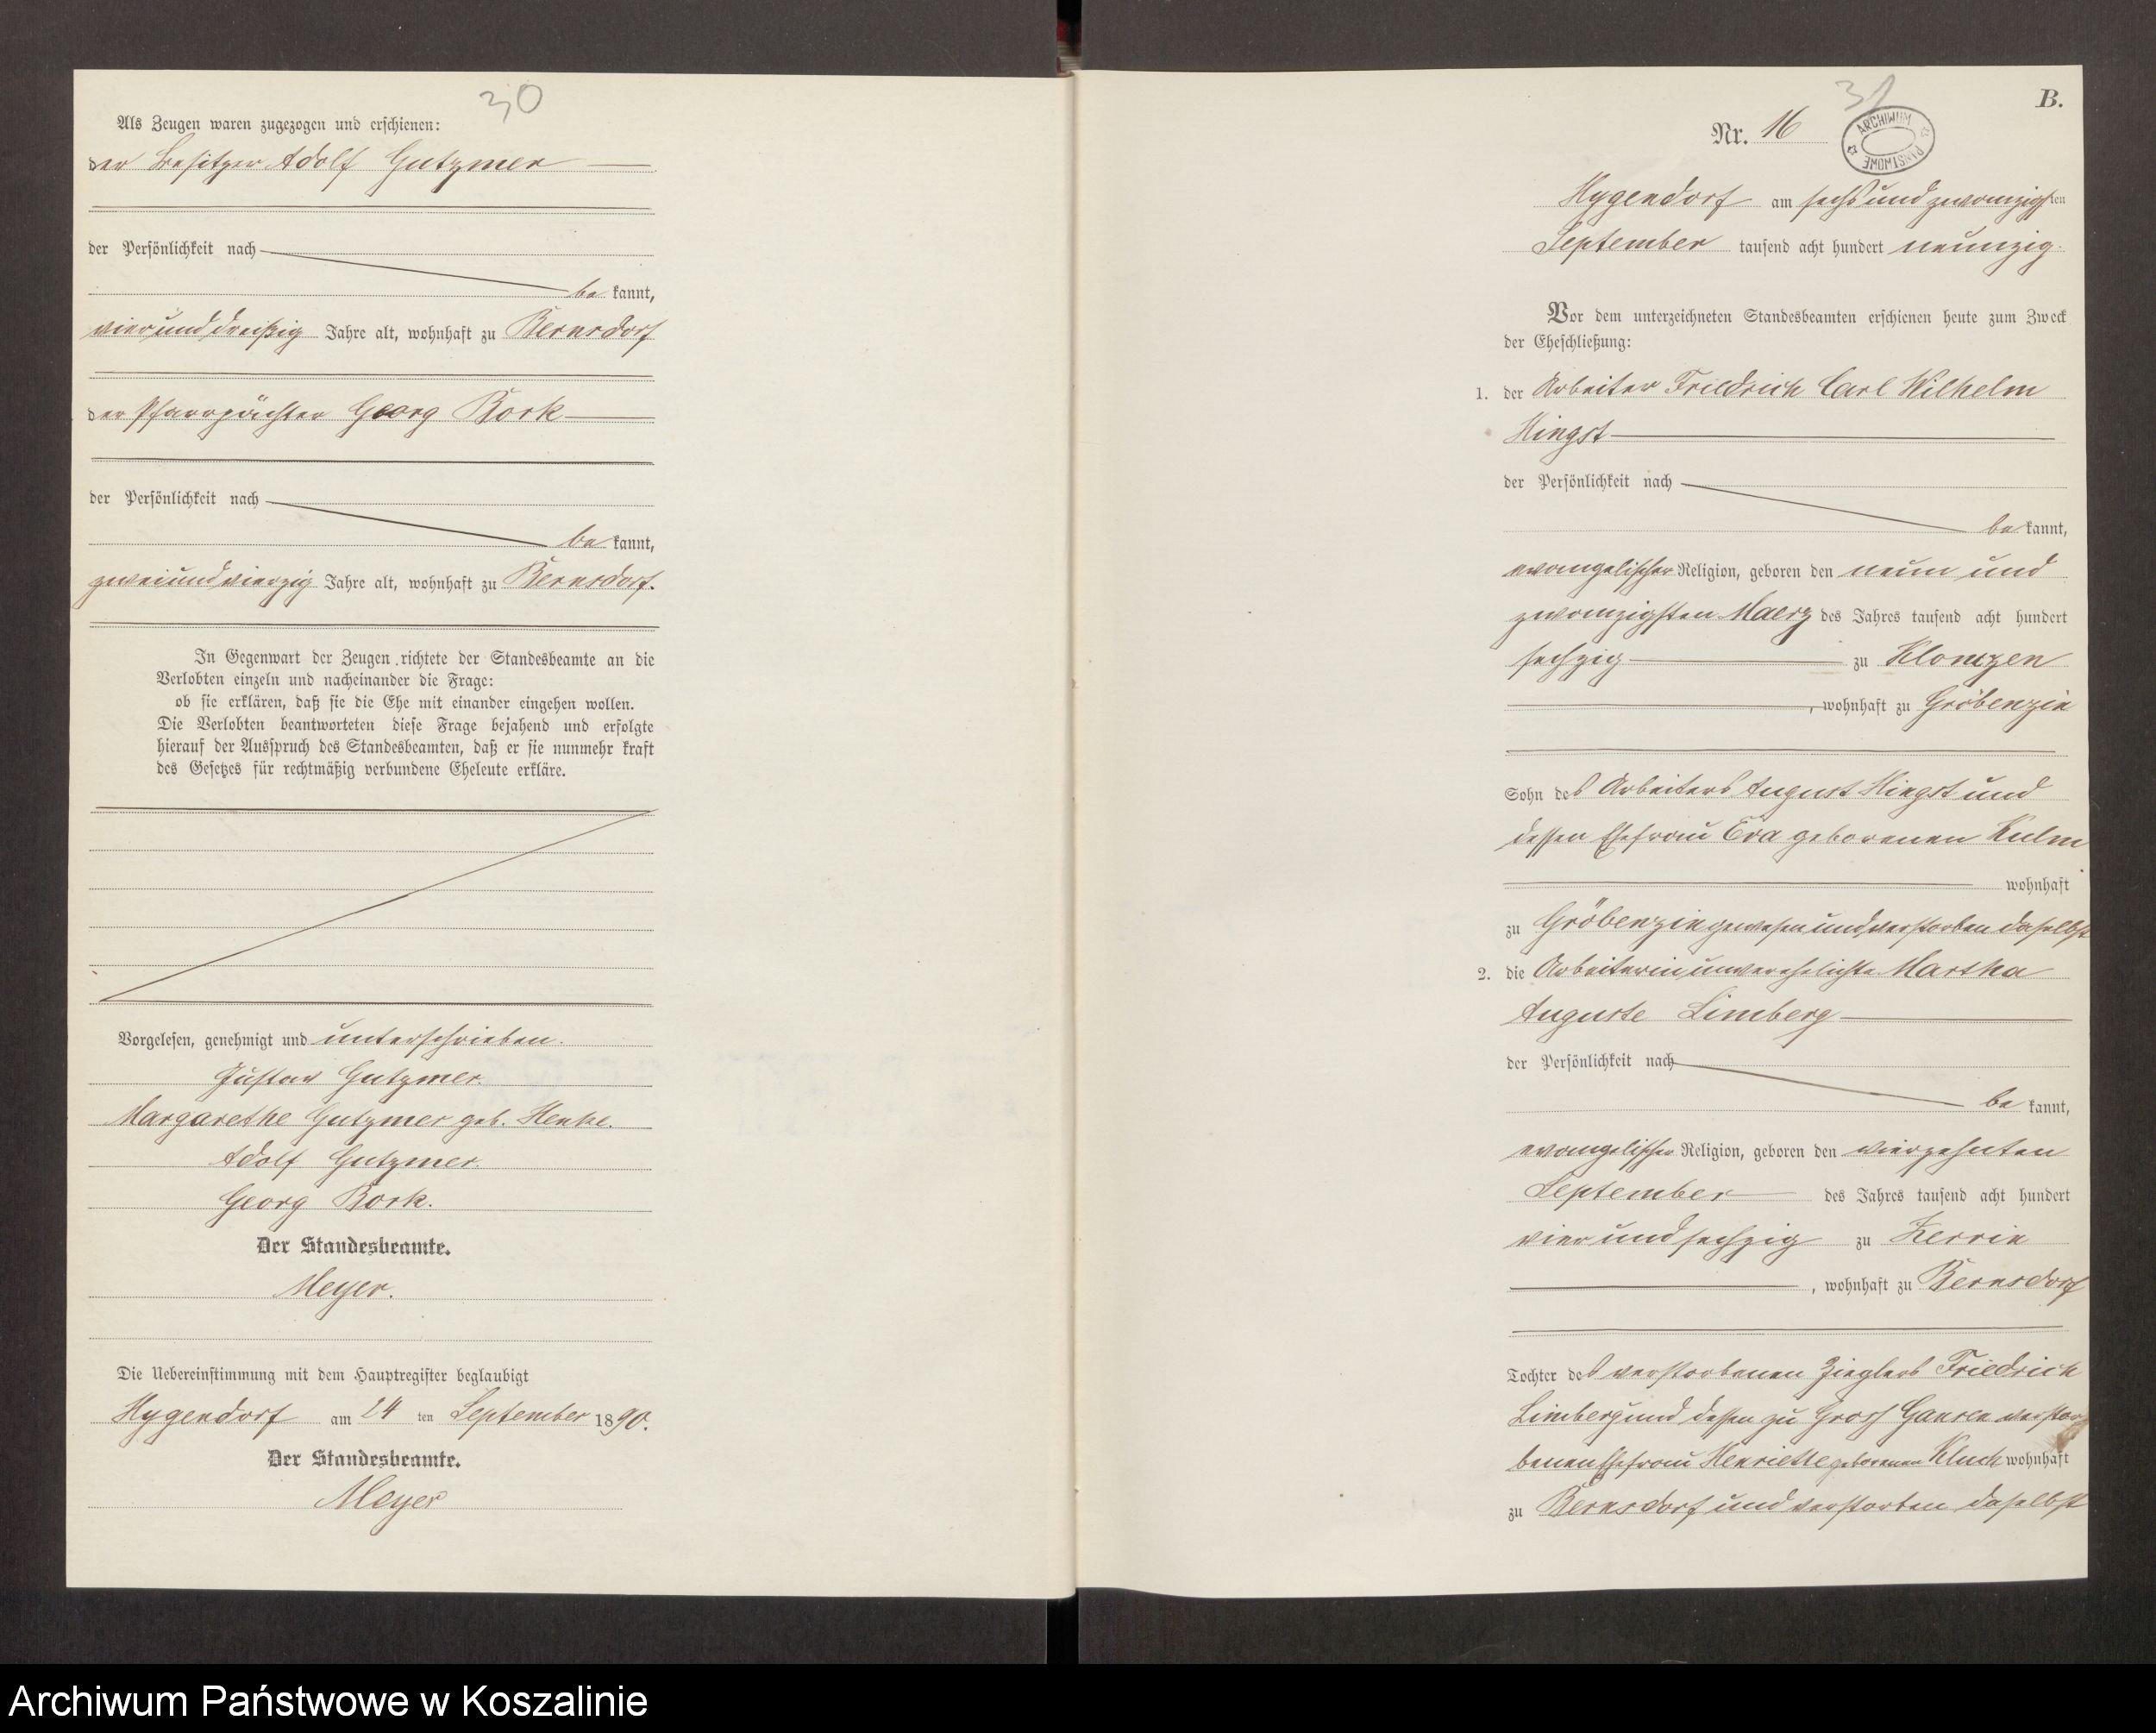 30
Als Zeugen waren zugezogen und erschienen:
der Besitzer Adolf Gutzmer
der Persönlichkeit nach
be kannt,
vierunddreißig Jahre alt, wohnhaft zu Bernsdorf
der Pfarrpächter Georg Bork
der Persönlichkeit nach
be kannt,
zweiundvierzig Jahre alt, wohnhaft zu Bernsdorf.
In Gegenwart der Zeugen richtete der Standesbeamte an die
Verlobten einzeln und nacheinander die Frage:
ob sie erklären, daß sie die Ehe mit einander eingehen wollen.
Die Verlobten beantworteten diese Frage bejahend und erfolgte
hierauf der Ausspruch des Standesbeamten, daß er sie nunmehr kraft
des Gesetzes für rechtmäßig verbundene Eheleute erkläre.
Vorgelesen, genehmigt und unterschrieben.
Gustav Gutzmer.
Margarethe Gutzmer geb. Henke.
Adolf Gutzmer.
Georg Bork.
Der Standesbeamte.
Meyer.
Die Uebereinstimmung mit dem Hauptregister beglaubigt
Hygendorf am 24 ten September 1890.
Der Standesbeamte.
Meyer
31
B.
Nr. 16
ARCHIWUM PAŃSTWOWE
Hygendorf am sechsundzwanzigsten
September tausend acht hundert neunzig.
Vor dem unterzeichneten Standesbeamten erschienen heute zum Zweck
der Eheschließung:
1. der Arbeiter Friedrich Carl Wilhelm
Hingst
der Persönlichkeit nach
be kannt,
evangelischer Religion, geboren den neun und
zwanzigsten Maerz des Jahres tausend acht hundert
sechzig zu Klonczen
, wohnhaft zu Gröbenzin
Sohn des Arbeiters August Hingst und
dessen Ehefrau Eva geborenen Kulm
wohnhaft
zu Gröbenzin gewesen und verstorben daselbst
2. die Arbeiterin unverehelichte Martha
Auguste Limberg
der Persönlichkeit nach
be kannt,
evangelischer Religion, geboren den vierzehnten
September des Jahres tausend acht hundert
vier und sechzig zu Zerrin
, wohnhaft zu Bernsdorf
Tochter des verstorbenen Zieglers Friedrich
Limberg und dessen zu Gross Gansen verstor
benen Ehefrau Henriette geborenen Kluck wohnhaft
zu Bernsdorf und verstorben daselbst
Archiwum Państwowe w Koszalinie